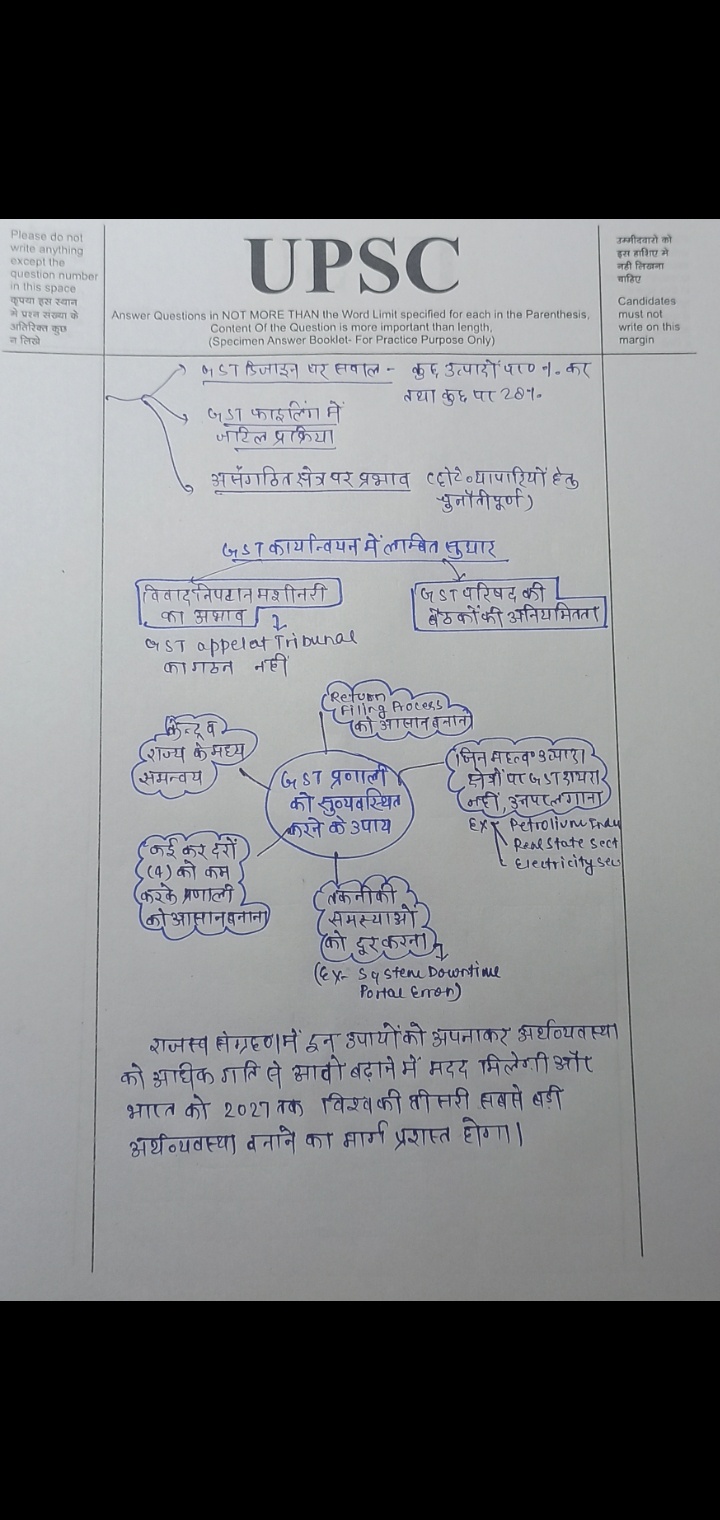 Please do not
write anything
except the
question number
in this space
कृपया इस स्थान
मे प्रश्न संख्या के
अतिरिक्त कुछ
न लिखे
UPSC
Answer Questions in NOT MORE THAN the Word Limit specified for each in the Parenthesis,
Content Of the Question is more important than length,
(Specimen Answer Booklet- For Practice Purpose Only)
उम्मीदवारो को
इस हाशिए मे
नही लिखना
चाहिए
Candidates
must not
write on this
margin
GST डिजाइन पर सवाल - कुछ उत्पादों पर 0 %. कर
तथा कुछ पर 28%.
GST फाइलिंग में
जटिल प्रक्रिया
असंगठित क्षेत्र पर प्रभाव (छोटे व्यापारियों हेतु
चुनौतीपूर्ण)
GST कार्यान्वयन में लम्बित सुधार
विवाद निपटान मशीनरी
का अभाव
GST appelat Tribunal
का गठन नहीं
GST परिषद की
बैठकों की अनियमितता
Return
Filing Process
को आसान बनाना
केन्द्र व
राज्य के मध्य
समन्वय
GST प्रणाली
को सुव्यवस्थित
करने के उपाय
जिन महत्व० उत्पादों
क्षेत्रों पर GST दायरा
नहीं, उनपर लगाना
Ex Petrolium Indu
Real State Sect
Electricity Sec
कई कर दरों
(4) को कम
करके प्रणाली
को आसान बनाना
तकनीकी
समस्याओं
को दूर करना
(Ex- System Downtime
Portal Error)
राजस्व संग्रहण में इन उपायों को अपनाकर अर्थव्यवस्था
को अधिक गति से आगे बढ़ाने में मदद मिलेगी और
भारत को 2027 तक विश्व की तीसरी सबसे बड़ी
अर्थव्यवस्था बनाने का मार्ग प्रशस्त होगा।